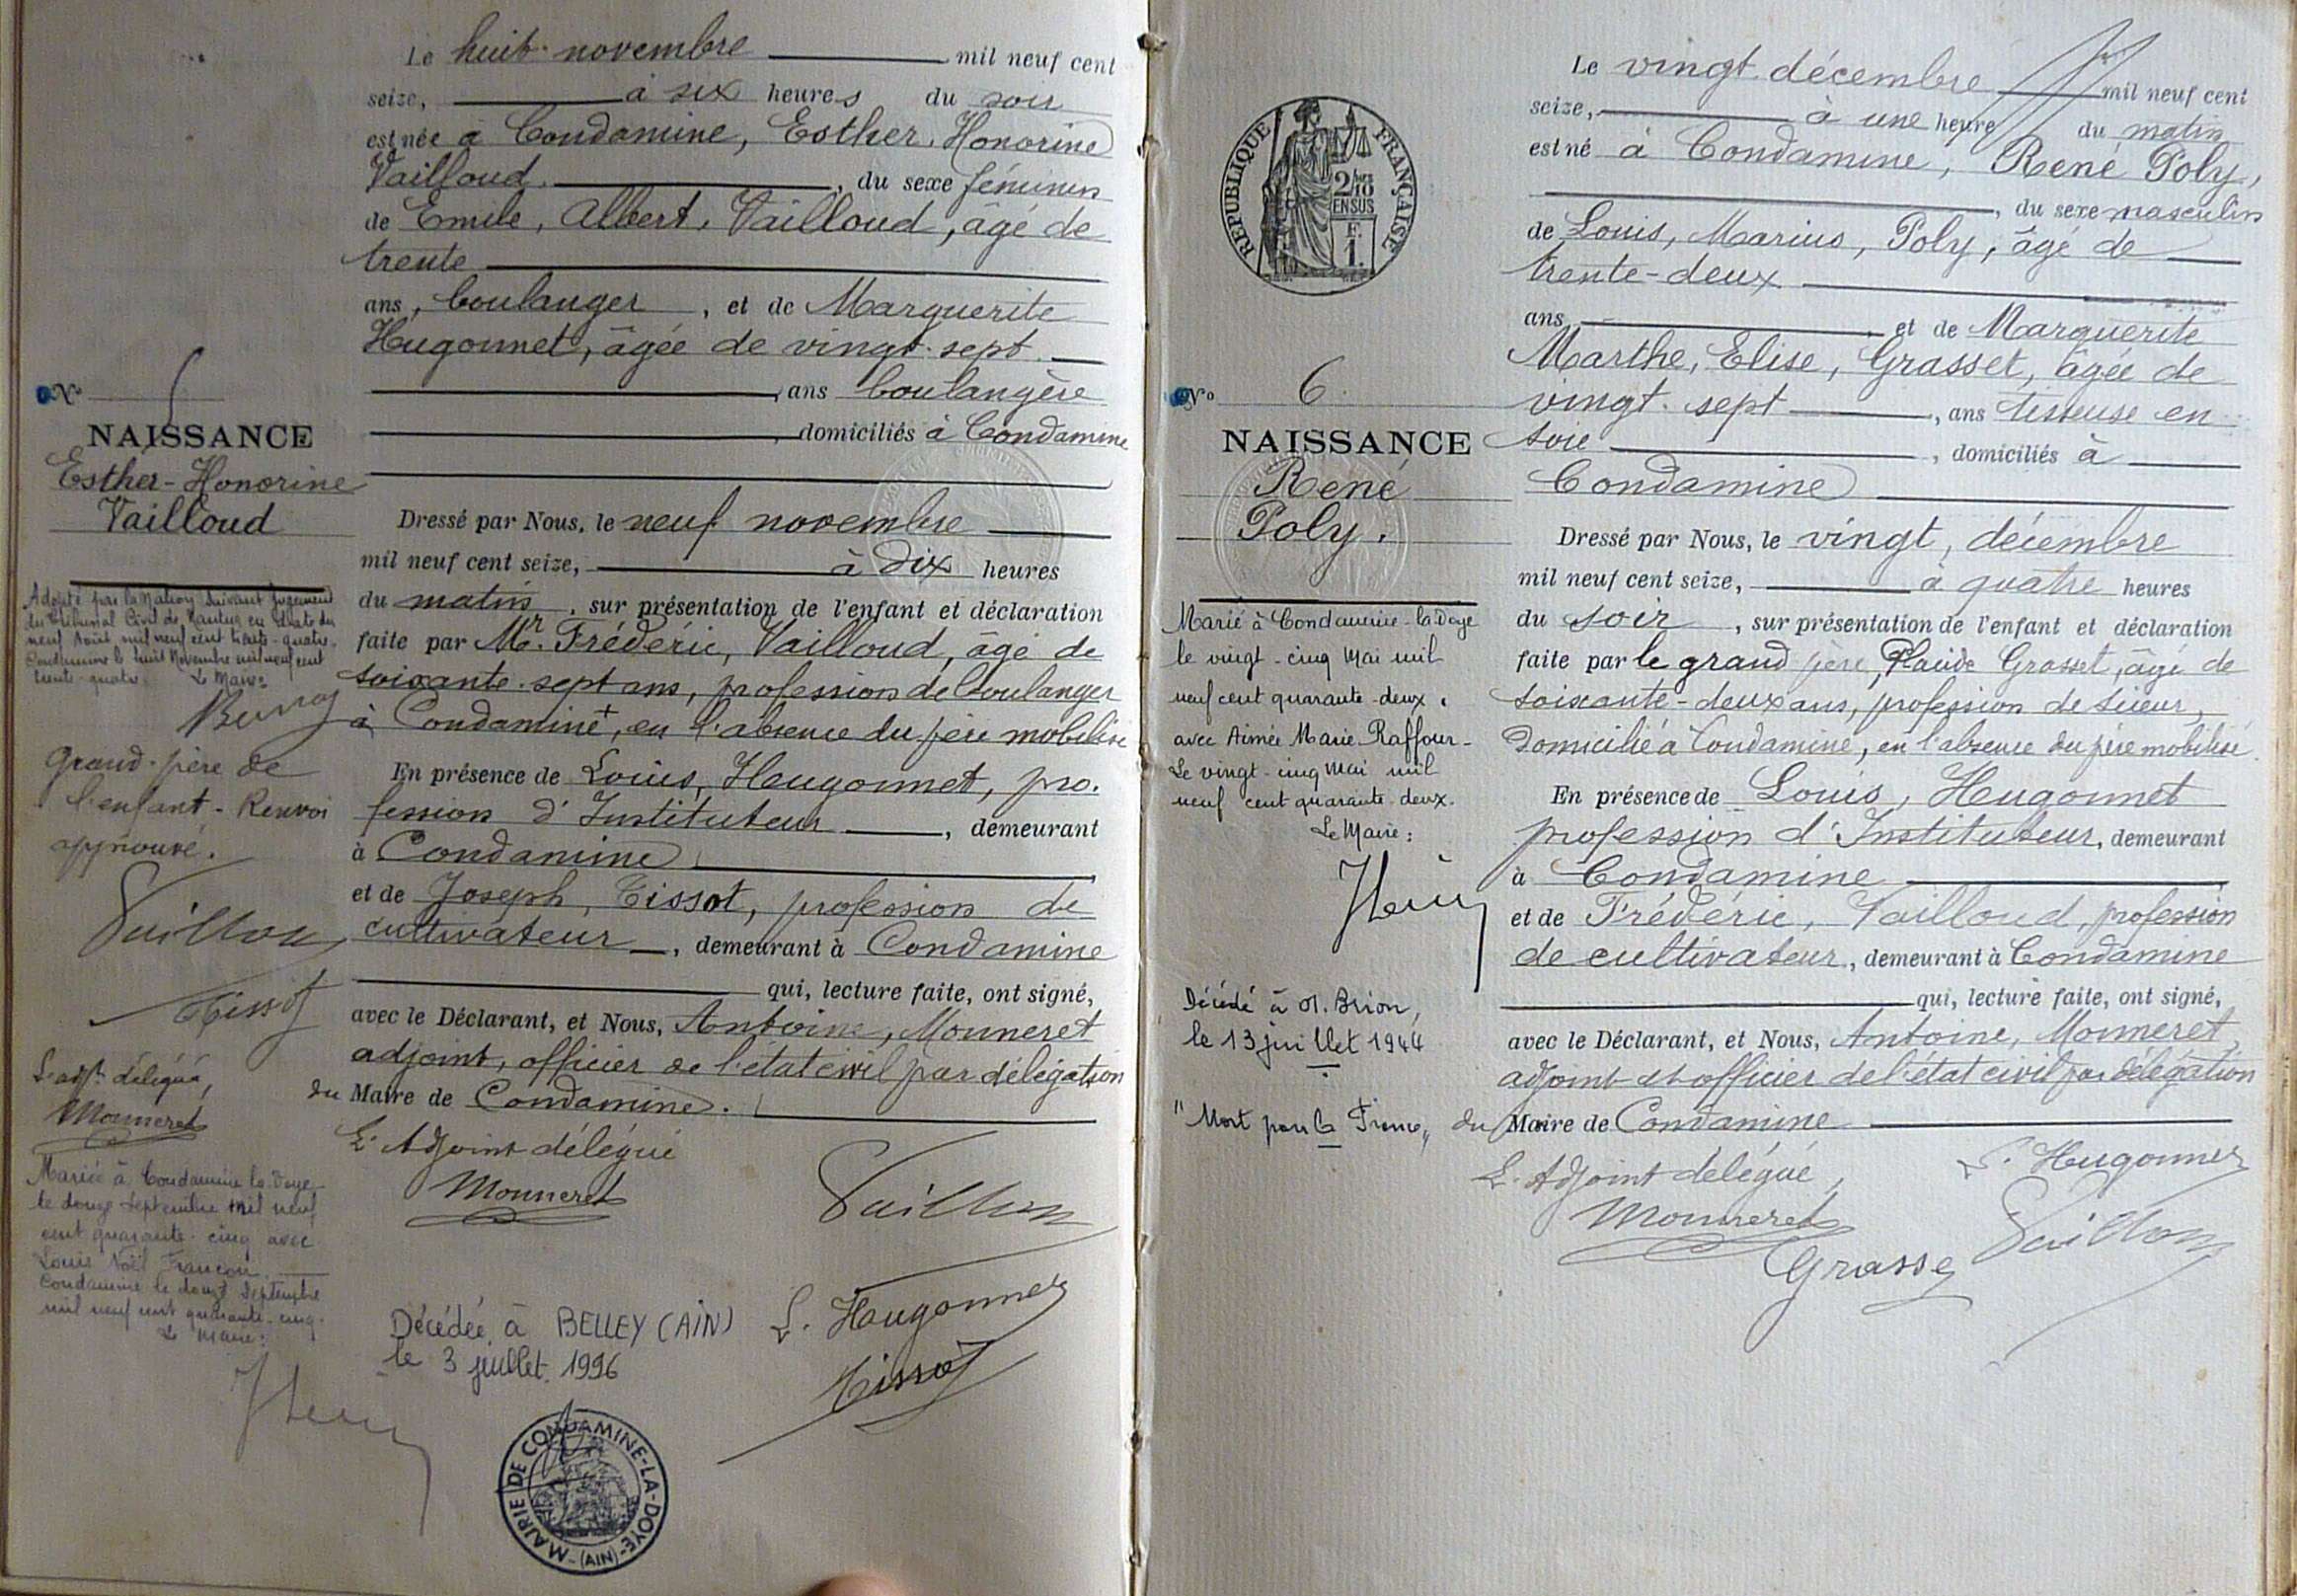 Le huit novembre mil neuf cent
seize, à six heures du soir
est née à Condamine, Esther, Honorine
Vailloud, du sexe féminin
de Emile, Albert, Vailloud, âgé de
trente
ans, boulanger, et de Marguerite
Hugonnet, âgée de vingt-sept
, ans boulangère
, domiciliés à Condamine
Dressé par Nous, le neuf novembre
mil neuf cent seize, à dix heures
du matin, sur présentation de l'enfant et déclaration
faite par Mr Frédéric, Vailloud, âgé de
soixante-sept ans, profession de boulanger
à Condamine +, en l'absence du père mobilisé
En présence de Louis, Hugonnet, pro-
fession d'Instituteur, demeurant
à Condamine
et de Joseph, Tissot, profession de
cultivateur, demeurant à Condamine
qui, lecture faite, ont signé,
avec le Déclarant, et Nous, Antoine, Monneret
adjoint, officier de l'état civil par délégation
du Maire de Condamine.
L'Adjoint délégué
Monneret
L. Hugonnet
Tissot
Décédée à BELLEY (AIN)
le 3 juillet 1996
MAIRIE DE CONDAMINE-LA-DOYE - (AIN) -
No 5
NAISSANCE
Esther-Honorine
Vailloud
Adopté par la Nation suivant jugement
du Tribunal Civil de Nantua en date du
neuf Août mil neuf cent trente-quatre.
Condamine le huit Novembre mil neuf cent
trente-quatre. Le Maire
Grand-père de
l'enfant - Renvoi
approuvé.
Tissot
L'adjt délégué,
Monneret
Mariée à Condamine-la-Doye
le douze Septembre mil neuf
cent quarante-cinq avec
Louis Noël Françon.
Condamine le douze Septembre
mil neuf cent quarante-cinq.
Le Maire:
Le vingt décembre mil neuf cent
seize, à une heure du matin
est né à Condamine, René Poly,
, du sexe masculin
de Louis, Marius, Poly, âgé de
trente-deux
ans, et de Marguerite
Marthe, Elise, Grasset, âgée de
vingt-sept, ans tisseuse en
soie, domiciliés à
Condamine
Dressé par Nous, le vingt, décembre
mil neuf cent seize, à quatre heures
du soir, sur présentation de l'enfant et déclaration
faite par le grand père, Placide Grasset, âgé de
soixante-deux ans, profession de scieur,
domicilié à Condamine, en l'absence du père mobilisé.
En présence de Louis, Hugonnet
profession d'Instituteur, demeurant
à Condamine
et de Frédéric, Vailloud, profession
de cultivateur, demeurant à Condamine
qui, lecture faite, ont signé,
avec le Déclarant, et Nous, Antoine, Monneret,
adjoint et officier de l'état civil par délégation
du Maire de Condamine
L'Adjoint délégué,
L. Hugonnet
Monneret
Grasset
RÉPUBLIQUE FRANÇAISE
2/10
EN SUS
F.
1.
No 6
NAISSANCE
René
Poly.
Marié à Condamine-la-Doye
le vingt-cinq Mai mil
neuf cent quarante-deux,
avec Aimée Marie Raffour-
Le vingt-cinq Mai mil
neuf cent quarante-deux.
Le Maire:
Décédé à St. Brion,
le 13 juillet 1944
"Mort pour la France"